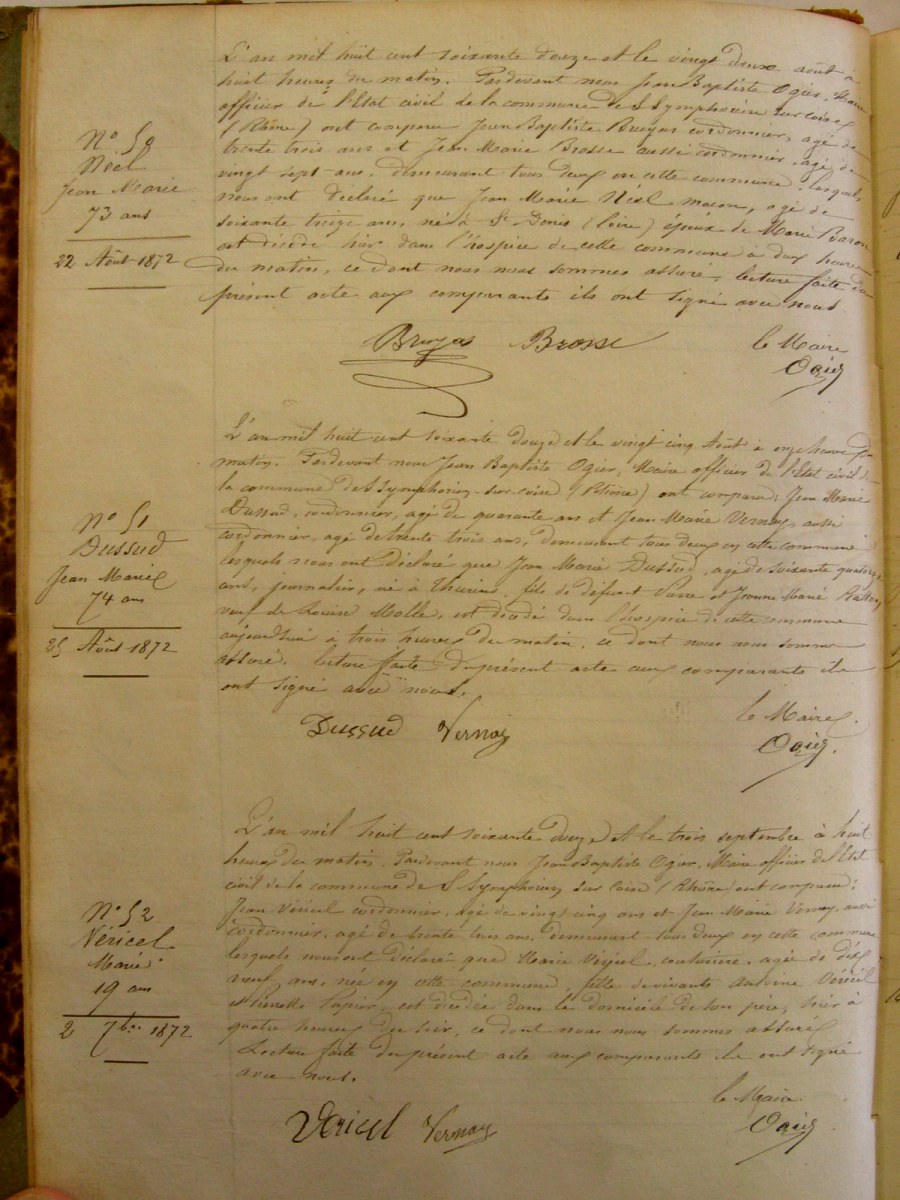 L'an mil huit cent soixante douze et le vingt deux août à
huit heures du matin. Pardevant nous Jean Baptiste Ogier, Maire
officier de l'Etat civil de la commune de S Symphorien sur coise
(Rhône) ont comparu Jean Baptiste Bruyas cordonnier, agé de
trente trois ans et Jean Marie Brosse aussi cordonnier, agé de
vingt sept ans, demeurant tous deux en cette commune, lesquels
nous ont déclaré que Jean Marie Néel macon, agé de
soixante treize ans, né à St Denis (Loire) époux de Marie Baron
est décédé hier dans l'hospice de cette commune à deux heures
du matin, ce dont nous nous sommes assuré, lecture faite du
présent acte aux comparants ils ont signé avec nous
N° 50
Néel
Jean Marie
73 ans
22 Août 1872
Bruyas Brosse
le Maire
Ogier
L'an mil huit cent soixante douze et le vingt cinq Août à onze heures du
matin. Pardevant nous Jean Baptiste Ogier, Maire officier de l'Etat civil de
la commune de S Symphorien sur coise (Rhône) ont comparu: Jean Marie
Dussud, cordonnier, agé de quarante ans et Jean Marie Vernay, aussi
cordonnier, agé de trente trois ans, demeurant tous deux en cette commune
lesquels nous ont déclaré que Jean Marie Dussud, agé de soixante quatorze
ans, journalier, né à Thurins, fils de défunt Pierre et Jeanne Marie
veuf de Louise Molle, est décédé dans l'hospice de cette commune
aujourd'hui à trois heures du matin, ce dont nous nous sommes
assuré. lecture faite du présent acte aux comparants ils
ont signé avec nous.
N° 51
Dussud
Jean Marie
74 ans
25 Août 1872
Dussud Vernay
le Maire.
Ogier.
L'an mil huit cent soixante douze et le trois septembre à huit
heures du matin. Pardevant nous Jean Baptiste Ogier, Maire officier de l'Etat
civil de la commune de S Symphorien sur Coise (Rhône) ont comparu:
Jean Véricel cordonnier, agé de vingt cinq ans et Jean Marie Vernay, aussi
cordonnier, agé de trente trois ans, demeurant tous deux en cette commune
lesquels nous ont déclaré que Marie Vericel, couturière, agée de dix
neuf ans, née en cette commune, fille de vivants Antoine Véricel
et Pierrette, est décédée dans le domicile de son père, hier à
quatre heures du soir, ce dont nous nous sommes assuré
Lecture faite du présent acte aux comparants ils ont signé
avec nous.
N° 52
Véricel
Marie
19 ans
2 7bre 1872
Vericel Vernay
le Maire
Ogier